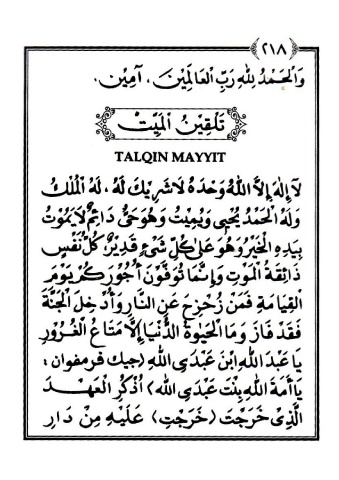 ﴿٢١٨﴾
وَالْحَمْدُ لِلّٰهِ رَبِّ الْعَالَمِيْنَ ، آمِيْنَ .
تَلْقِيْنُ الْمَيِّتْ
TALQIN MAYYIT
لَآ إِلٰهَ إِلَّا اللّٰهُ وَحْدَهُ لَا شَرِيْكَ لَهُ ، لَهُ الْمُلْكُ
وَلَهُ الْحَمْدُ يُحْيِى وَيُمِيْتُ وَهُوَ حَيٌّ دَائِمٌ لَا يَمُوْتُ
بِيَدِهِ الْخَيْرُ وَهُوَ عَلٰى كُلِّ شَىْءٍ قَدِيْرٌ ، كُلُّ نَفْسٍ
ذَائِقَةُ الْمَوْتِ وَإِنَّمَا تُوَفَّوْنَ أُجُوْرَكُمْ يَوْمَ
الْقِيَامَةِ فَمَنْ زُحْزِحَ عَنِ النَّارِ وَأُدْخِلَ الْجَنَّةَ
فَقَدْ فَازَ وَمَا الْحَيٰوةُ الدُّنْيَا إِلَّا مَتَاعُ الْغُرُوْرِ
يَا عَبْدَ اللّٰهِ ابْنَ عَبْدَىِ اللّٰهِ (جيك فرمفوان :
يَا أَمَةَ اللّٰهِ بِنْتَ عَبْدَىِ اللّٰهِ) أُذْكُرِ الْعَهْدَ
الَّذِىْ خَرَجْتَ (خَرَجْتِ) عَلَيْهِ مِنْ دَارِ